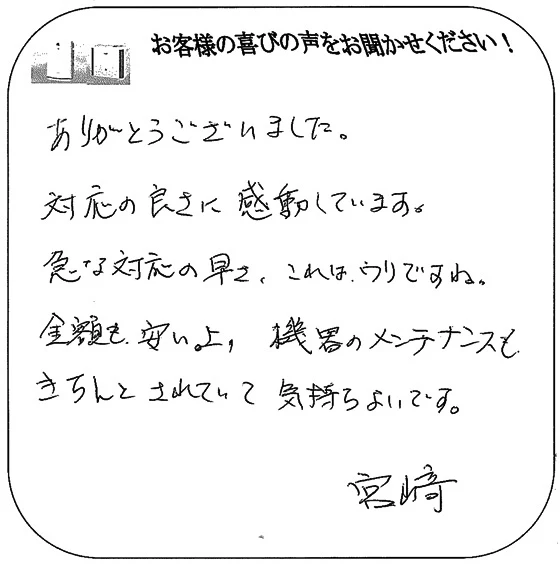 お客様の喜びの声をお聞かせください！
ありがとうございました。
対応の良さに感動しています。
急な対応の早さ、これは、ウリですね。
金額も、安い上、機器のメンテナンスも
きちんとされていて気持ちよいです。
宮﨑